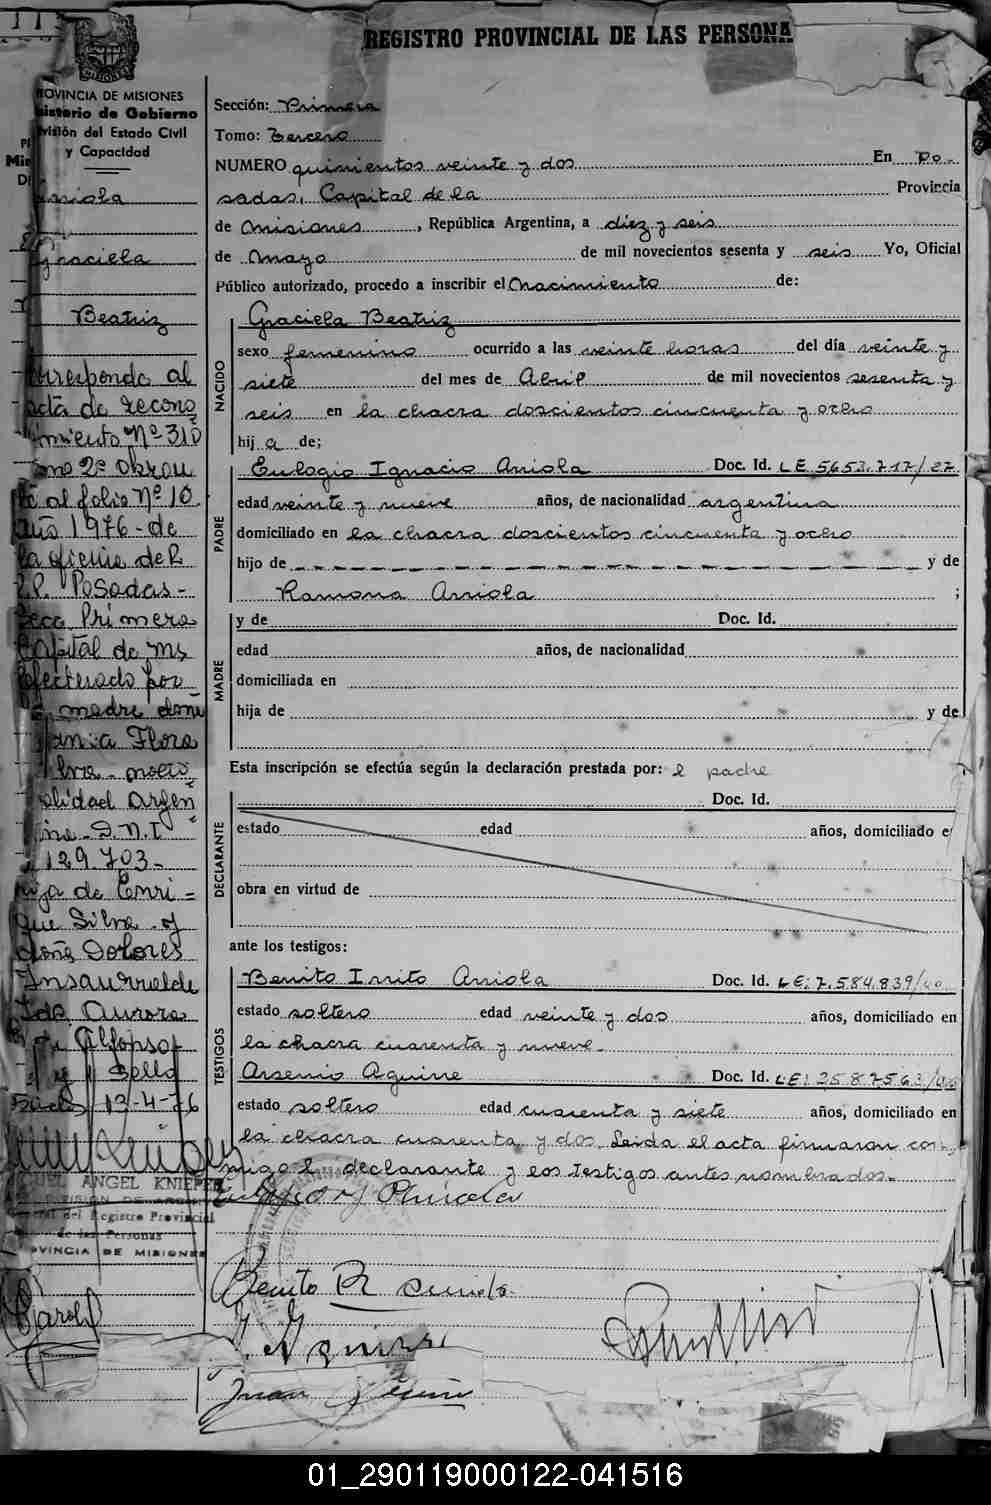 REGISTRO PROVINCIAL DE LAS PERSONA
PROVINCIA DE MISIONES
Ministerio de Gobierno
División del Estado Civil
y Capacidad
Arriola
Graciela
Beatriz
Corresponde al
acta de recono
cimiento Nº 310
Tomo 2º obran
te al folio Nº 10
año 1976 - de
la oficina del
R.P. Posadas -
Secc Primera
Capital de Ms
efectuado por
madre doña
Flora
Silva - nacio
nalidad Argen
tina - D.N.I
129.703 -
hija de Enri -
que Silva y
doña Dolores
Insaurralde
Ida Aurora
Alfonso
Bello
13-4-76
MIGUEL ANGEL KNIEPER
DIVISION DE
General del Registro Provincial
de las Personas
PROVINCIA DE MISIONES
Sección: Primera
Tomo: Tercero
NUMERO quinientos veinte y dos En Po-
sadas, Capital de la Provincia
de Misiones, República Argentina, a diez y seis
de Mayo de mil novecientos sesenta y seis Yo, Oficial
Público autorizado, procedo a inscribir el Nacimiento de:
NACIDO
Graciela Beatriz
sexo femenino ocurrido a las veinte horas del día veinte y
siete del mes de Abril de mil novecientos sesenta y
seis en la chacra doscientos cincuenta y ocho
hij a de;
PADRE
Eulogio Ignacio Arriola Doc. Id. LE 5653.717/27
edad veinte y nueve años, de nacionalidad argentina
domiciliado en la chacra doscientos cincuenta y ocho
hijo de y de
Ramona Arriola ;
MADRE
y de Doc. Id.
edad años, de nacionalidad
domiciliada en
hija de y de
Esta inscripción se efectúa según la declaración prestada por: el padre
DECLARANTE
Doc. Id.
estado edad años, domiciliado e
obra en virtud de
ante los testigos:
TESTIGOS
Benito Irrito Arriola Doc. Id. LE: 7.584.839/
estado soltero edad veinte y dos años, domiciliado en
la chacra cuarenta y nueve.
Arsenio Aguirre Doc. Id. LE: 2587563/
estado soltero edad cuarenta y siete años, domiciliado en
la chacra cuarenta y dos. Leida el acta firmaron con-
migo el declarante y los testigos antes nombrados.-
Benito R Arriola
Aguirre
Juan
01_290119000122-041516